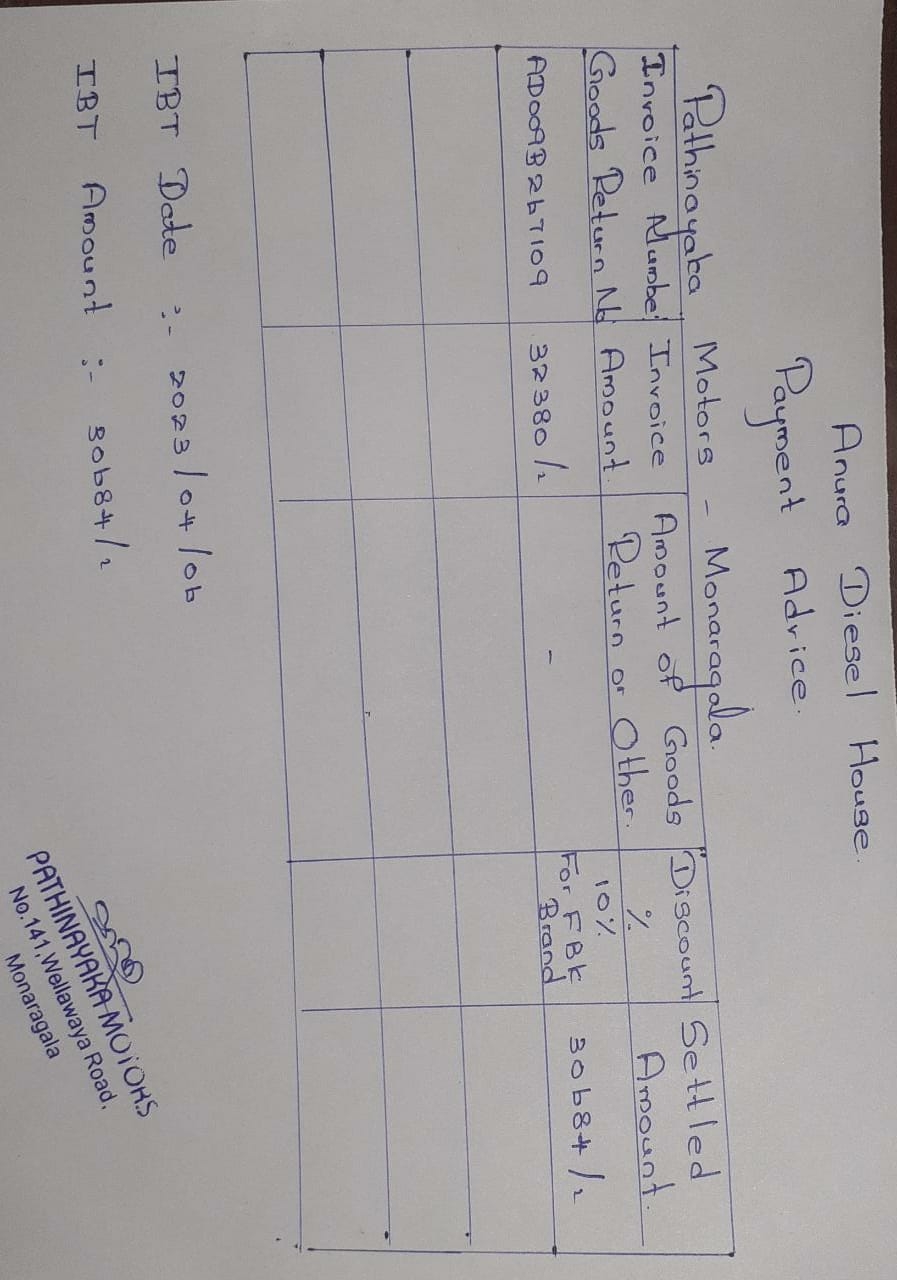 Anura Diesel House.
Payment Advice.
Pathinayaka Motors - Monaragala.
Invoice Number Invoice Amount of Goods Discount Settled
Goods Return No Amount. Return or Other. % Amount.
AD009B267109 32380/2 - 10% For FBK Brand 30684/2
IBT Date :- 2023/04/06
IBT Amount :- 30684/2
PATHINAYAKA MOTORS
No.141, Wellawaya Road,
Monaragala